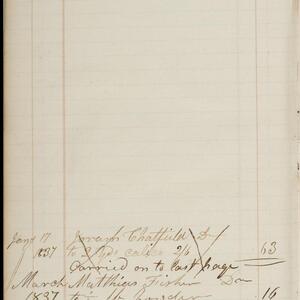 Jany 17 Joseph Chatfield Dr
1837 to 3 yds calico 2/6 63
Carried on to last page
March Matthias Fisher Dr
1837 to powder 16